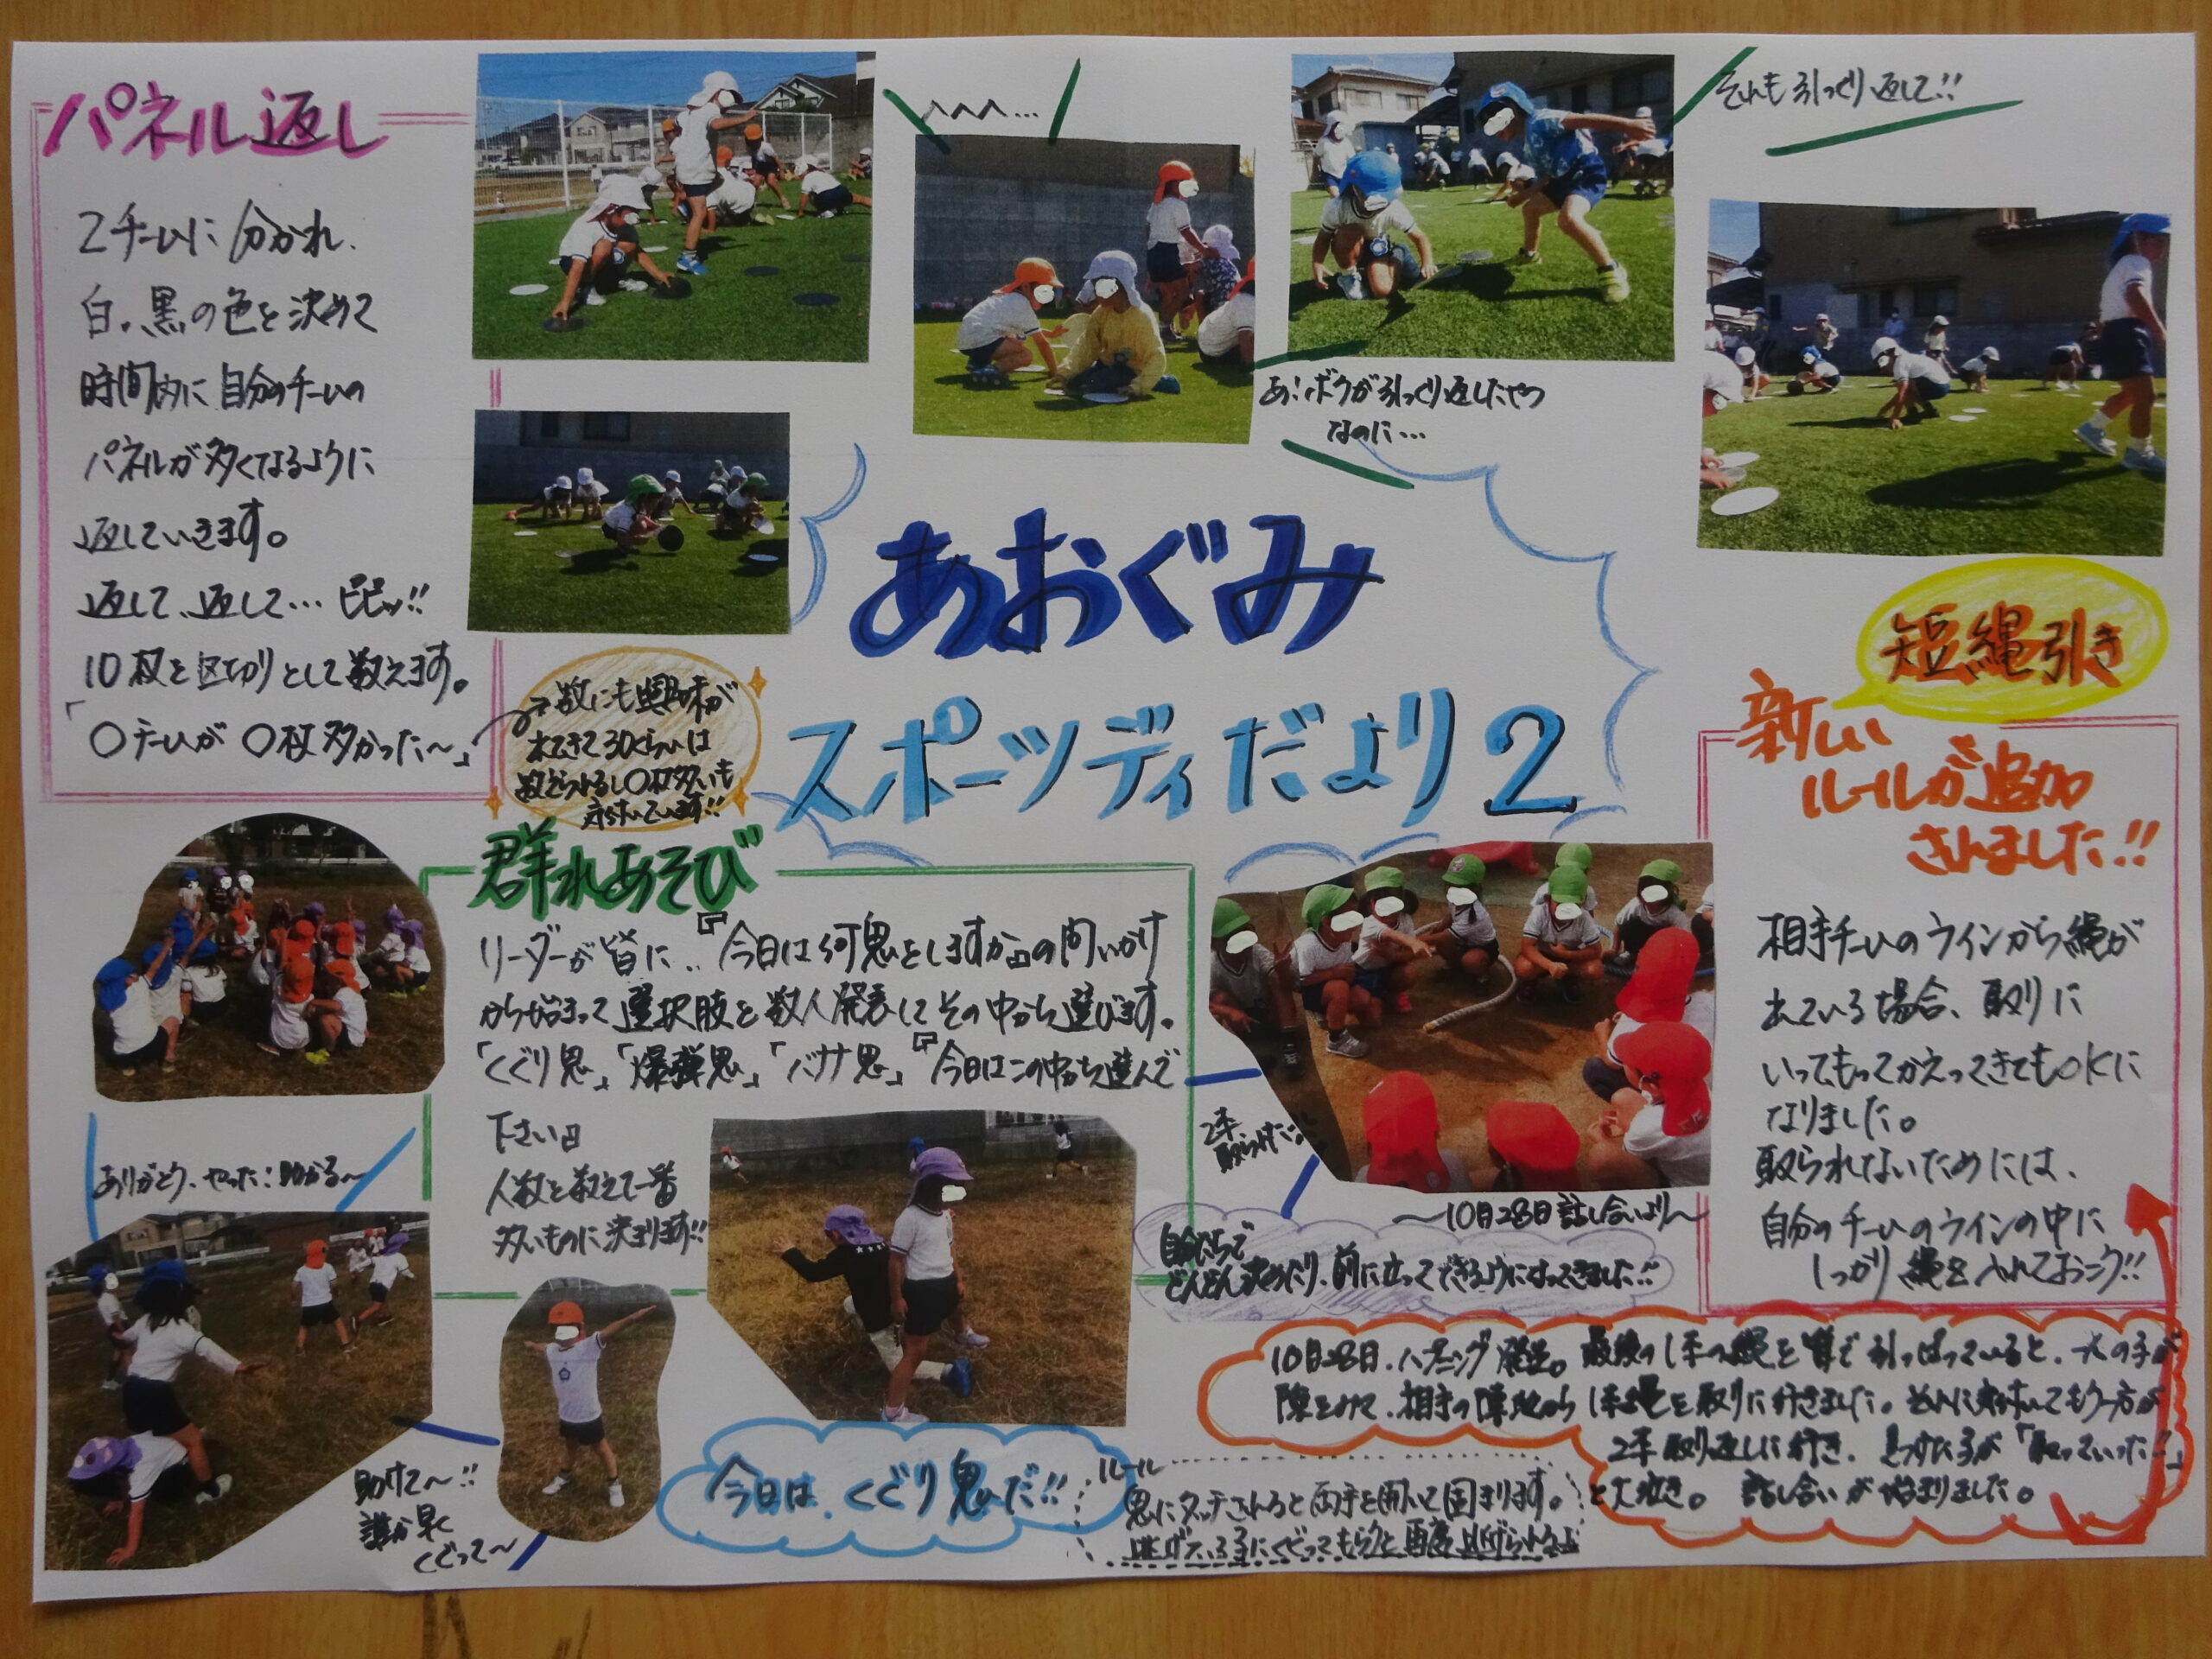 パネル返し
2チームに分かれ、
白、黒の色を決めて
時間内に自分のチームの
パネルが多くなるように
返していきます。
返して、返して…ピピッ!!
10枚を区切りとして数えます。
「〇チームが〇枚多かった～」
→数にも興味が
出てきて30ぐらいは
数えられるし〇枚多いも
気付いています!!
へへへ…
あ!ボクが引っくり返したやつ
なのに…
それも引っくり返して!!
あおぐみ
スポーツディだより2
短縄引き
新しい
ルールが追加
されました!!
相手チームのラインから縄が
出ている場合、取りに
いってもってかえってきてもOKに
なりました。
取られないためには、
自分のチームのラインの中に
しっかり縄を入れておこう!!
群れあそび
リーダーが皆に、『今日は何鬼をしますか』の問いかけ
から始まって選択肢を数人発表してその中から選びます。
「くぐり鬼」「爆弾鬼」「バナナ鬼」『今日はこの中から選んで
下さい』
人数を数えて一番
多いものに決まります!!
ありがとう、やった!助かる～
助けて～!!
誰か早く
くぐって～
今日は、くぐり鬼だ!!
ルール
鬼にタッチされると両手を開いて固まります。
逃げている子にくぐってもらうと再度逃げられるよ
2本
取られた
～10月28日話し合いより～
自分たちで
どんどん決めたり、前に立ってできるようになってきました!!
10月28日、ハプニング発生。最後の1本の縄を皆で引っぱっていると、一人の子が
隙をみて、相手の陣地から1本縄を取りに行きました。それに気付いてもう一方が
2本取り返しに行き、見つけた子が「取っていった!!」
と大泣き。話し合いが始まりました。